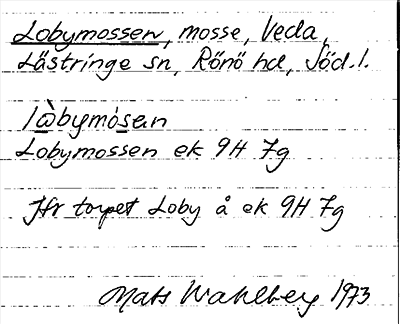 Lobymossen, mosse, Veda,
Lästringe sn, Rönö hd, Söd. l.
lὼbymósen
Lobymossen ek 9H 7g
Jfr torpet Loby å ek 9H 7g
Mats Wahlberg 1973